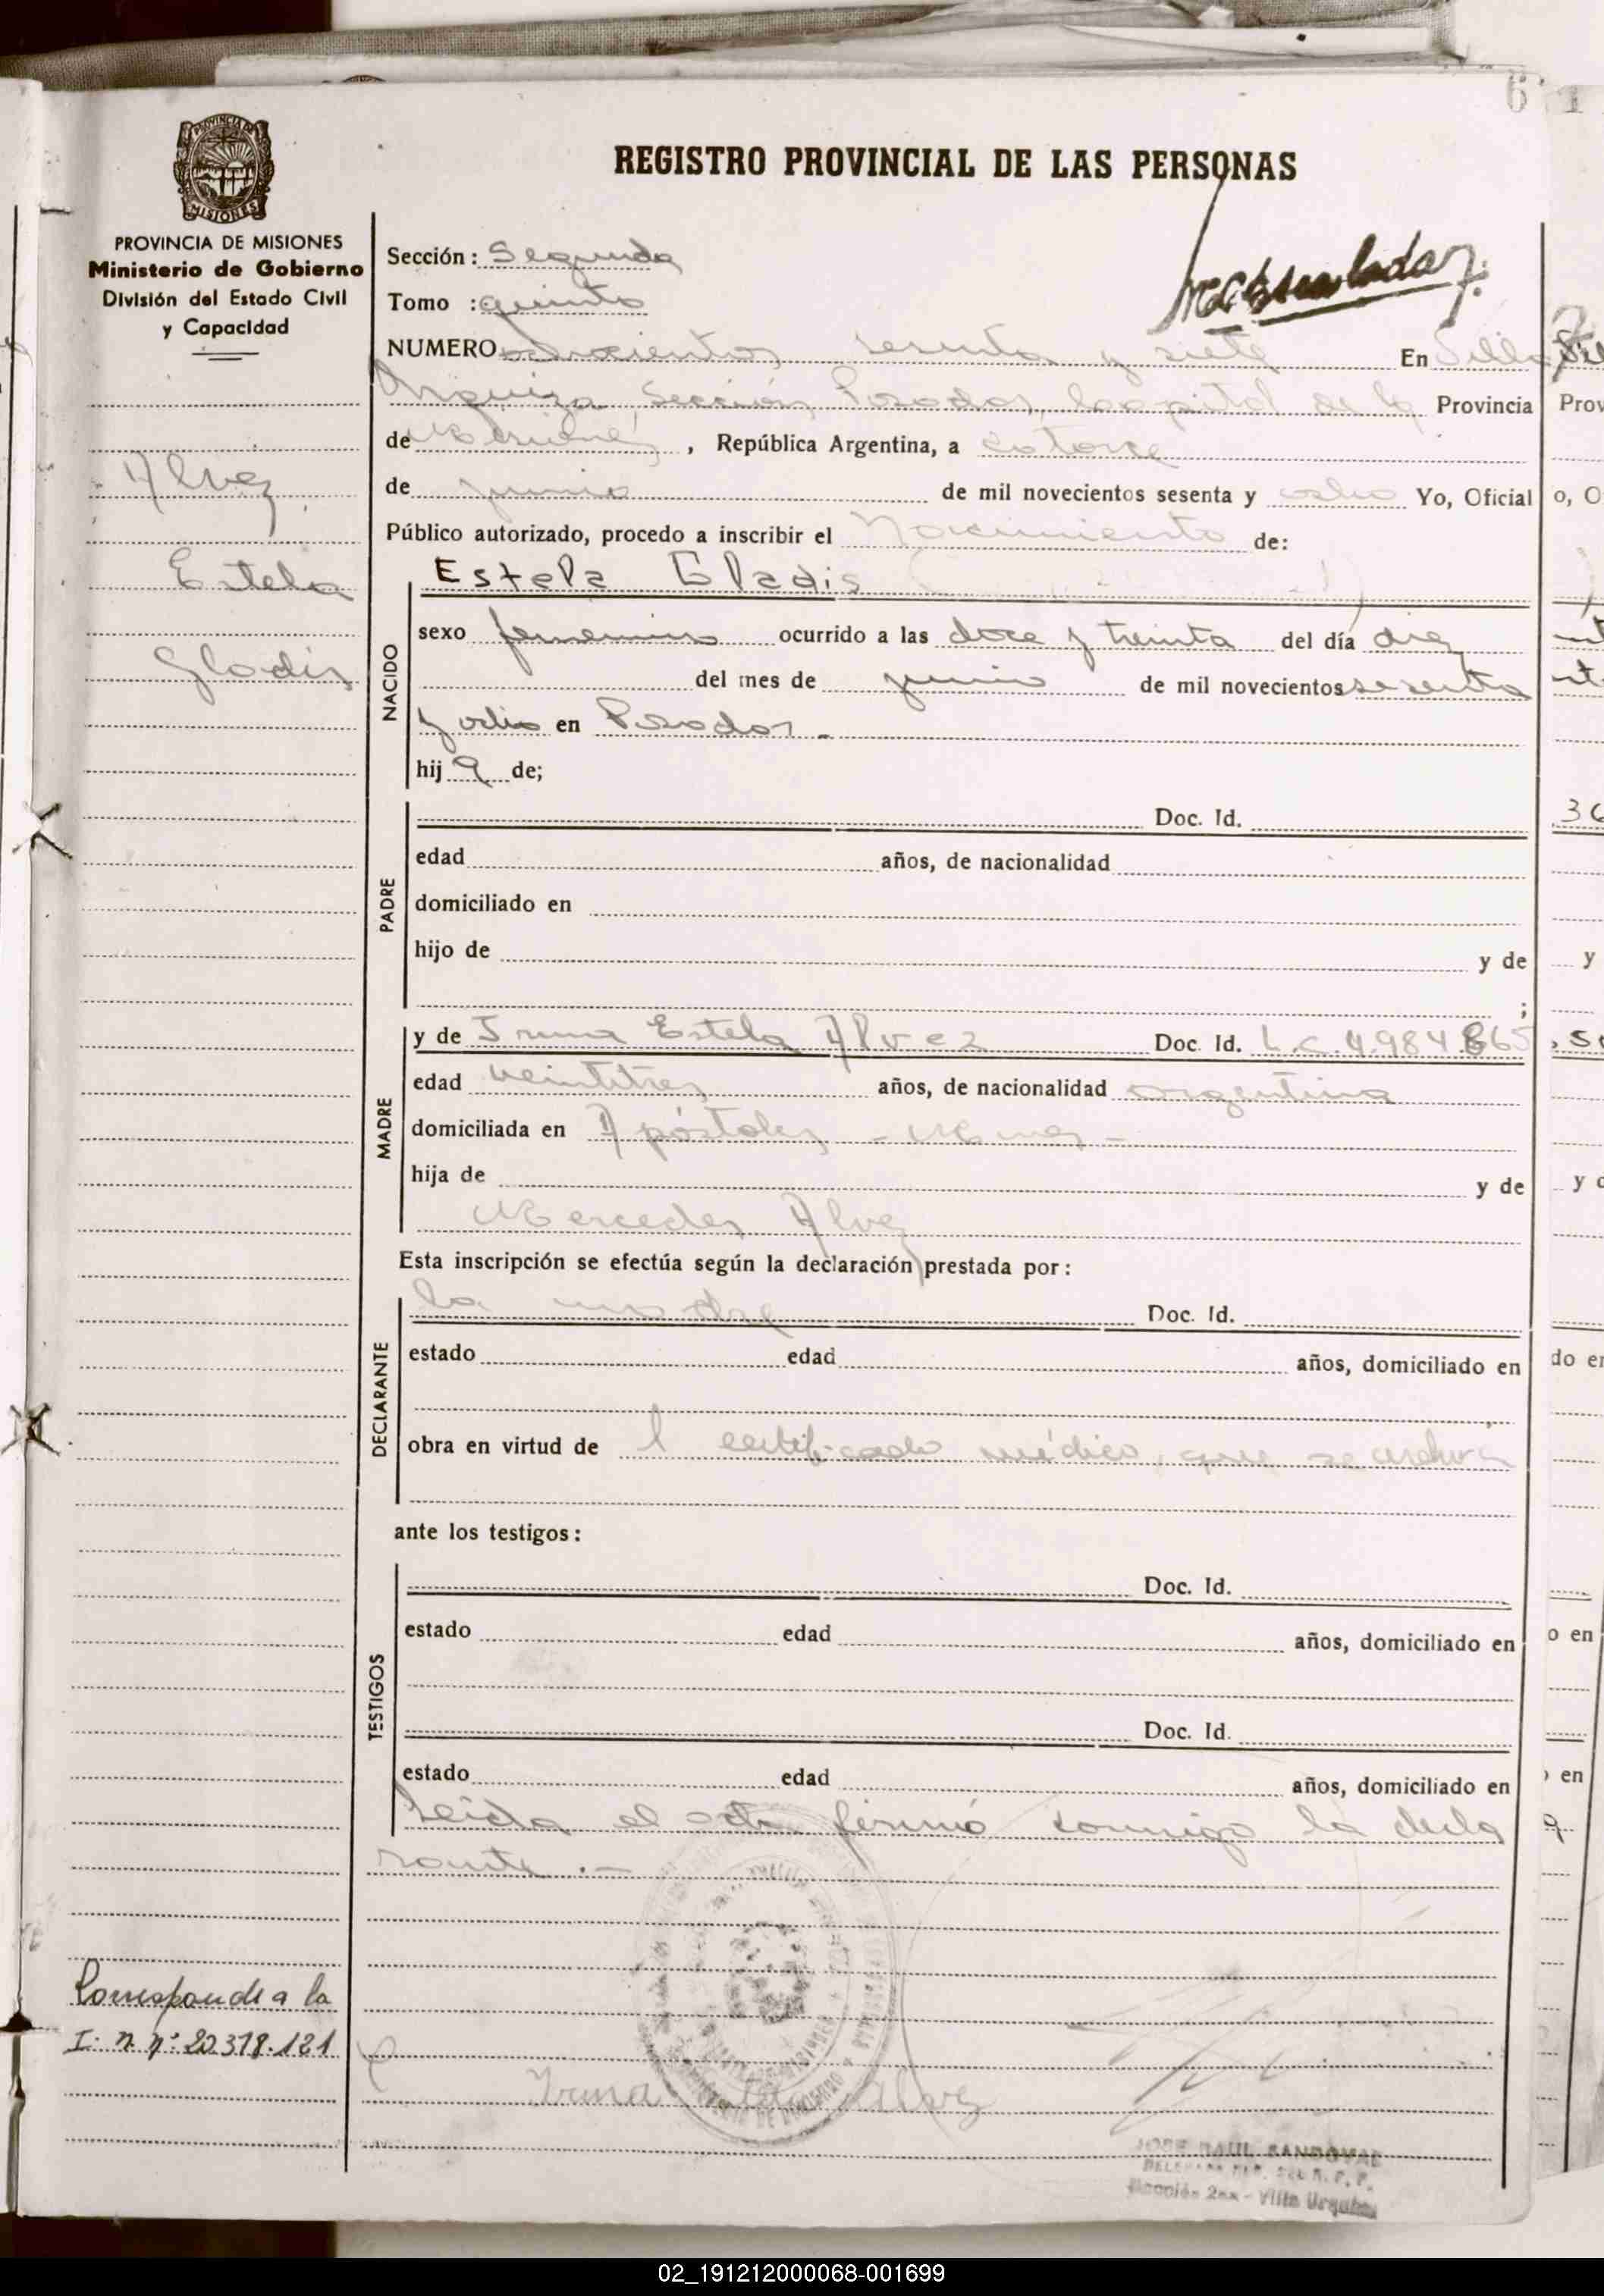 6
REGISTRO PROVINCIAL DE LAS PERSONAS
PROVINCIA DE MISIONES
Ministerio de Gobierno
División del Estado Civil
y Capacidad
Alvez
Estela
Gladis
Sección: Segunda
Tomo : quinto
NUMERO sesenta y siete En Villa
Urquiza, Sección Posadas, Capital de la Provincia
de Misiones, República Argentina, a catorce
de junio de mil novecientos sesenta y ocho Yo, Oficial
Público autorizado, procedo a inscribir el Nacimiento de:
NACIDO
Estela Gladis
sexo femenino ocurrido a las doce y treinta del día diez
del mes de junio de mil novecientos sesenta
y ocho en Posadas.-
hija de;
PADRE
Doc. Id.
edad años, de nacionalidad
domiciliado en
hijo de y de
;
MADRE
y de Irma Estela Alvez Doc. Id. L.C. 4.984.865
edad veintitres años, de nacionalidad argentina
domiciliada en Apóstoles - Mnes -
hija de y de
Mercedes Alvez
Esta inscripción se efectúa según la declaración prestada por:
DECLARANTE
la madre Doc. Id.
estado edad años, domiciliado en
obra en virtud de l certificado médico, que se archiva
ante los testigos:
TESTIGOS
Doc. Id.
estado edad años, domiciliado en
Doc. Id.
estado edad años, domiciliado en
Leída el acta firmó conmigo la decla
rante.-
Corresponde a la
I. n nº: 20.378.121
Irma Alvez
JOSE RAUL SANDOVAL
Sección 2da - Villa Urquiza
02_191212000068-001699